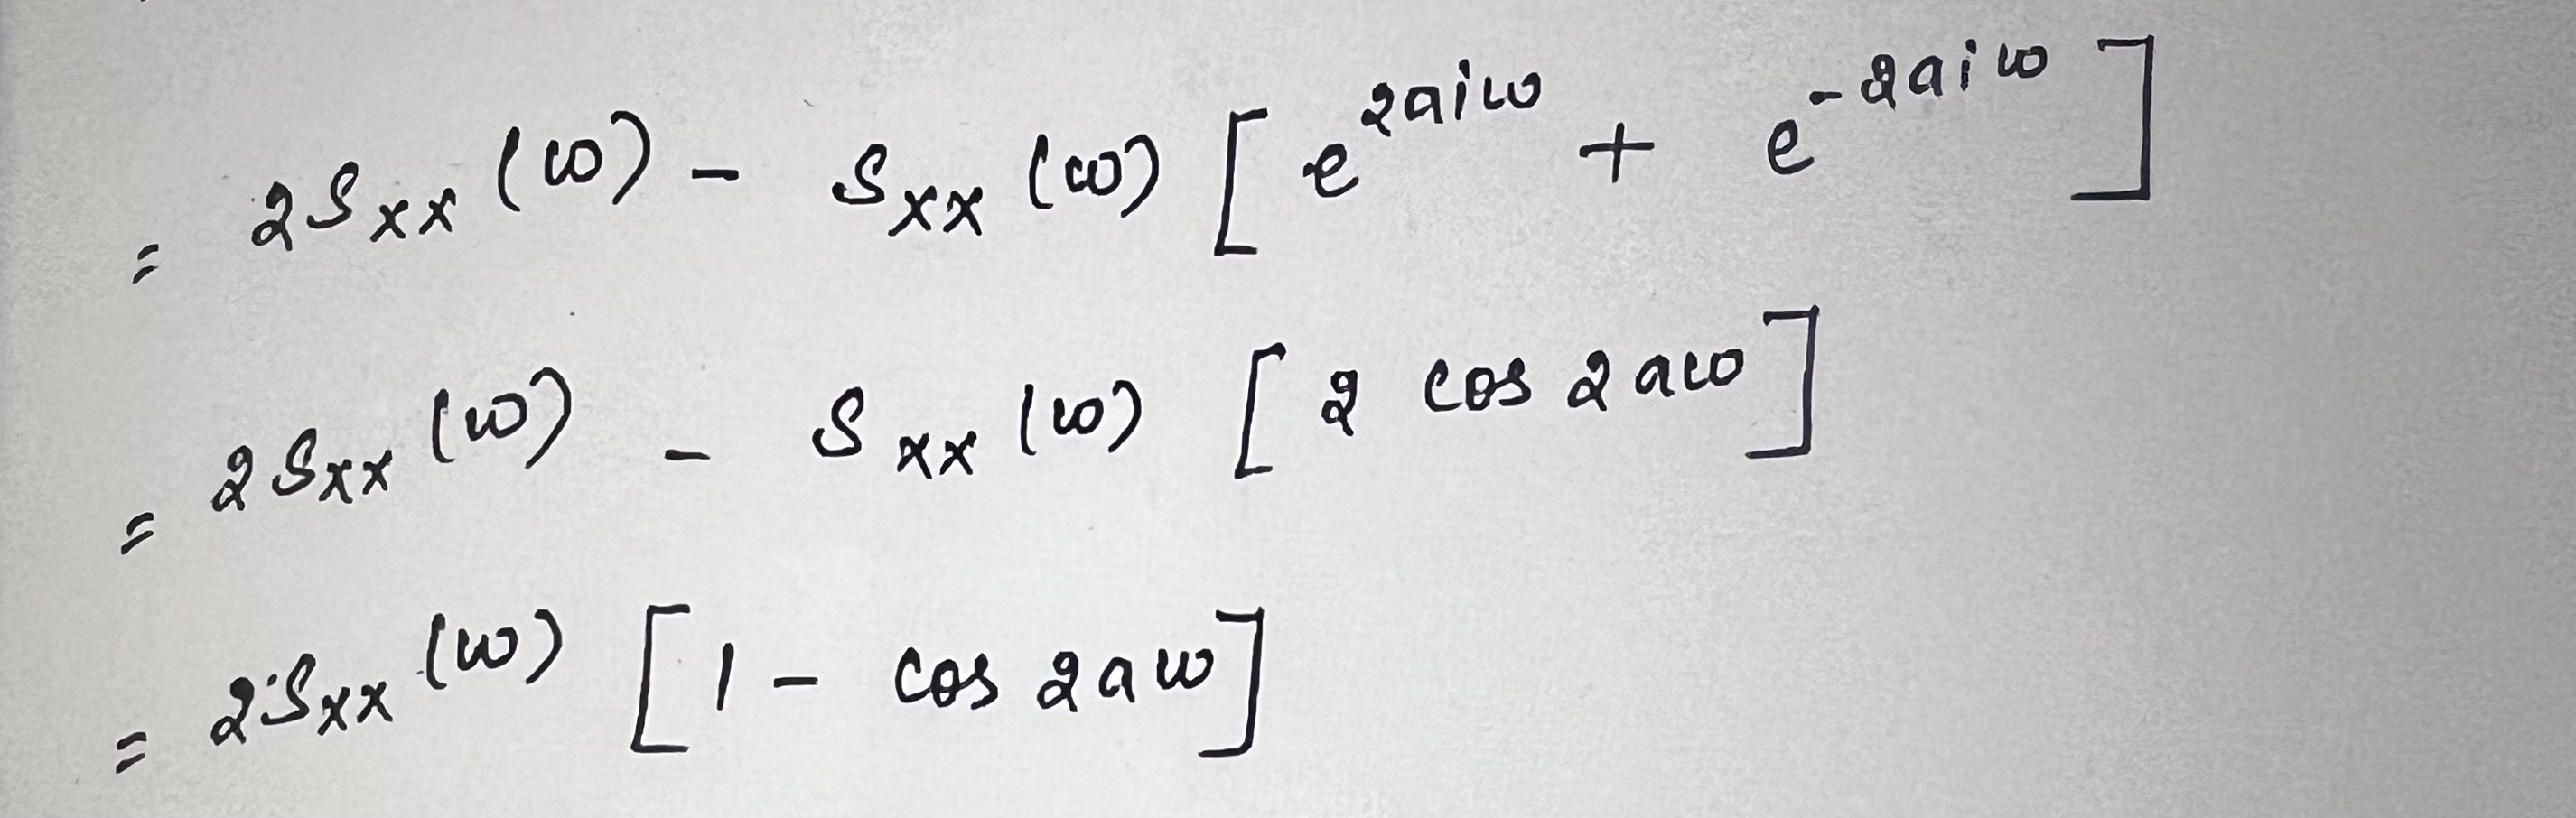 = 2S_{xx}(ω) - S_{xx}(ω) [e^{2aiω} + e^{-2aiω}]
= 2S_{xx}(ω) - S_{xx}(ω) [2 cos 2aω]
= 2S_{xx}(ω) [1 - cos 2aω]